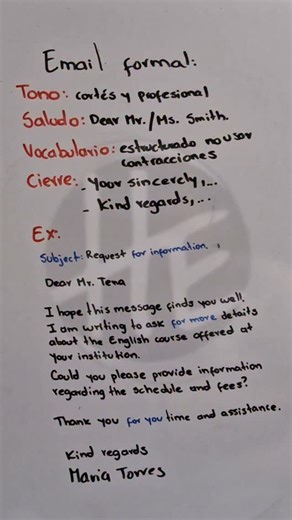 Email formal:
Tono: cortés y profesional
Saludo: Dear Mr./Ms. Smith.
Vocabulario: estructurado no usar
contracciones
Cierre: - Your sincerely,...
- Kind regards,...
Ex:
Subject: Request for information,
Dear Mr. Tena
I hope this message finds you well.
I am writing to ask for more details
about the English course offered at
your institution.
Could you please provide information
regarding the schedule and fees?
Thank you for you time and assistance.
Kind regards
Maria Torres